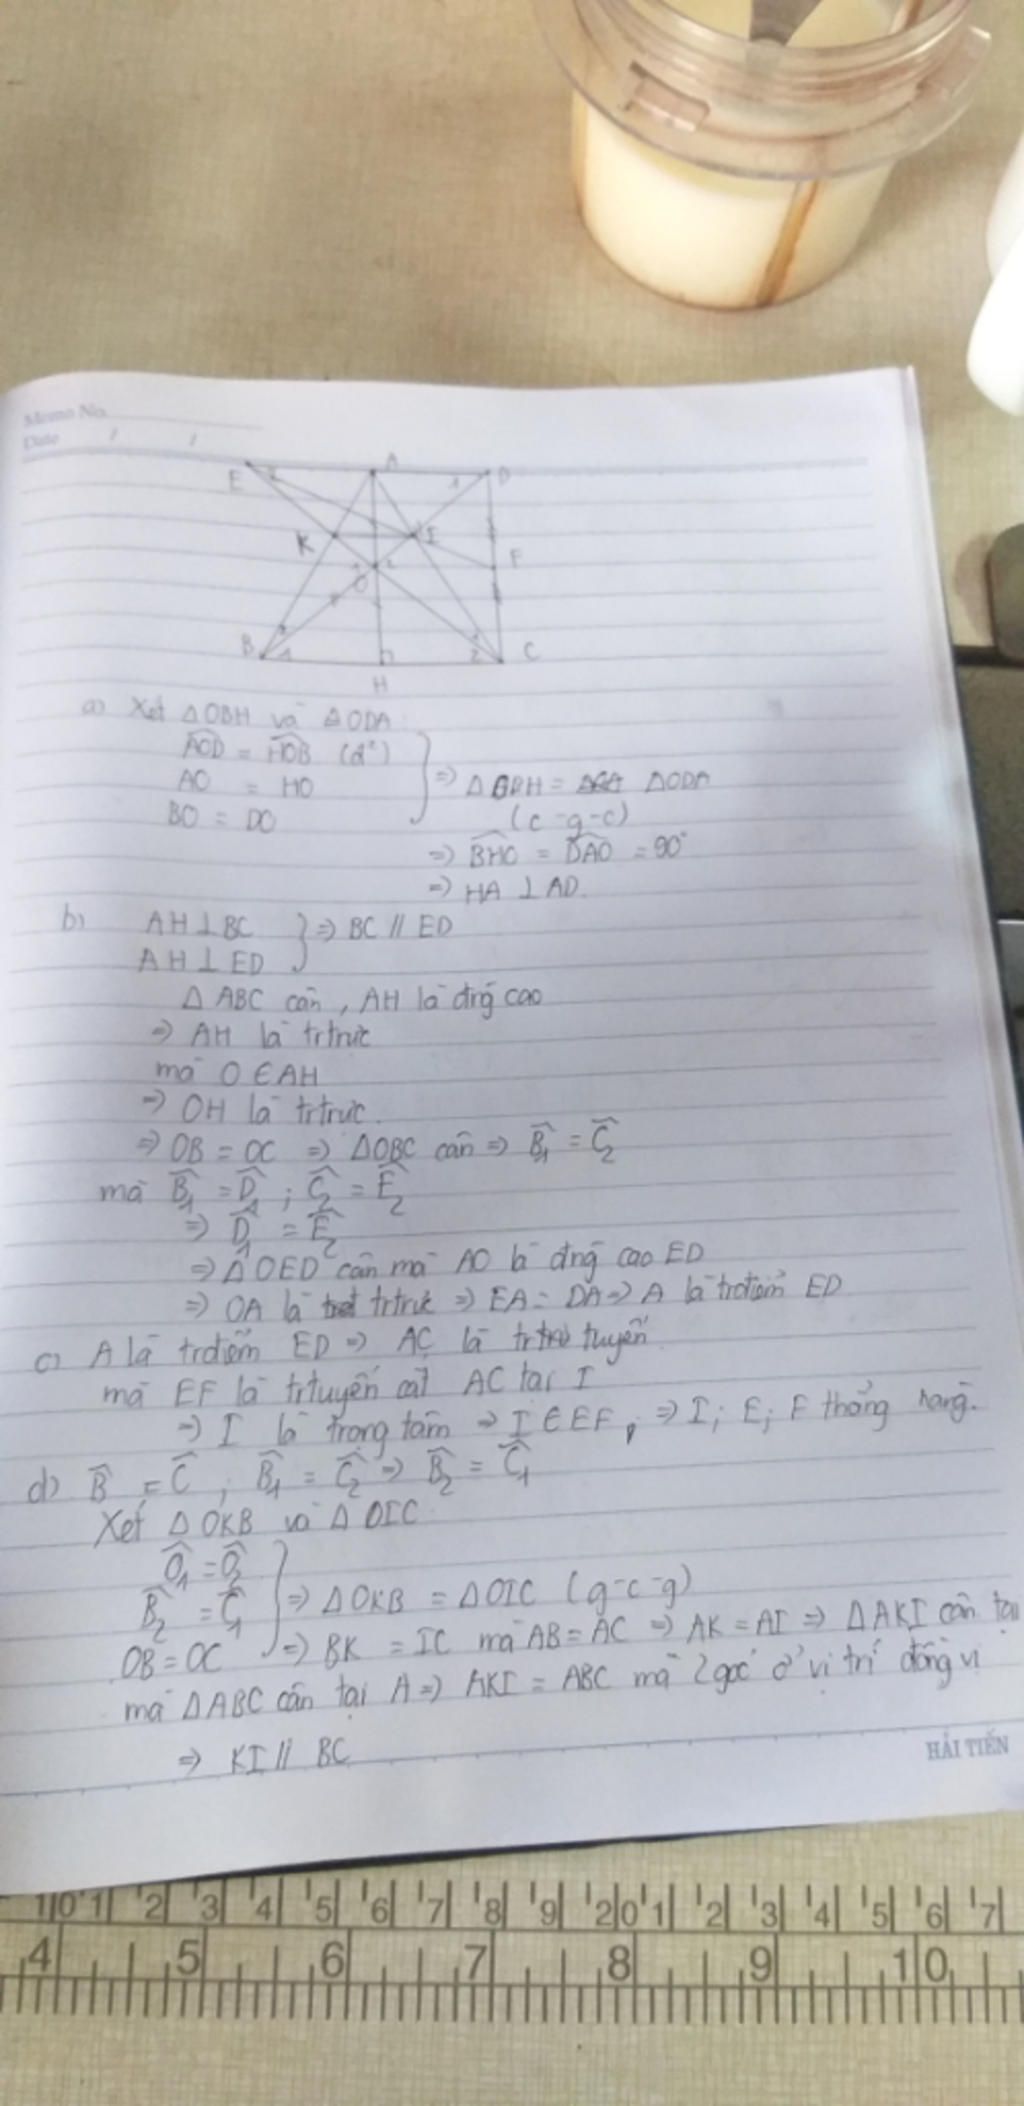 Memo No.
Date / /
E A D
K I
F
O
B C
H
a) Xét ΔOBH và ΔODA:
AOD = HOB (đ²)
AO = HO
BO = DO
=> ΔOBH = ΔODA
(c-g-c)
=> BHO = DAO = 90°
=> HA ⊥ AD.
b) AH ⊥ BC
AH ⊥ ED
=> BC // ED
Δ ABC cân, AH là đng̃ cao
=> AH là trtrực
mà O ∈ AH
=> OH là trtrực.
=> OB = OC => ΔOBC cân => B̂₁ = Ĉ₂
mà B̂₁ = D̂₁ ; Ĉ₂ = Ê₂
=> D̂₁ = Ê₂
=> ΔOED cân mà AO là đng̃ cao ED
=> OA là trtrực => EA = DA => A là trđiểm ED
c) A là trđiểm ED => AC là trtuyến
mà EF là trtuyến cắt AC tại I
=> I là trọng tâm => I ∈ EF, => I; E; F thẳng hàng.
d) B̂ = Ĉ ; B̂₁ = Ĉ₂ => B̂₂ = Ĉ₁
Xét Δ OKB và Δ OIC
Ô₁ = Ô₂
B̂₂ = Ĉ₁
OB = OC
=> ΔOKB = ΔOIC (g-c-g)
=> BK = IC mà AB = AC => AK = AI => ΔAKI cân tại
mà ΔABC cân tại A => AKI = ABC mà 2 góc ở vị trí đồng vị
=> KI // BC
HẢI TIẾN
10 1 2 3 4 5 6 7 8 9 20 1 2 3 4 5 6 7
4 5 6 7 8 9 10